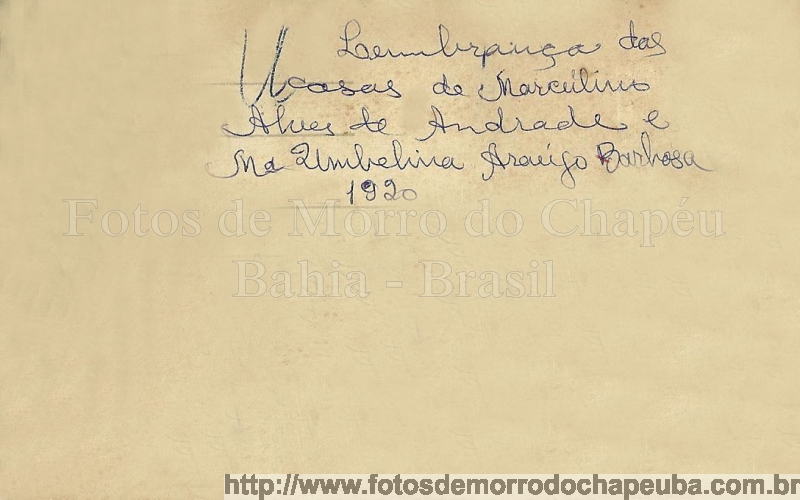 Lembrança das
casas de Marculino
Alves de Andrade e
Ma Umbelina Araújo Barbosa
1920
Fotos de Morro do Chapéu
Bahia - Brasil
http://www.fotosdemorrodochapeuba.com.br